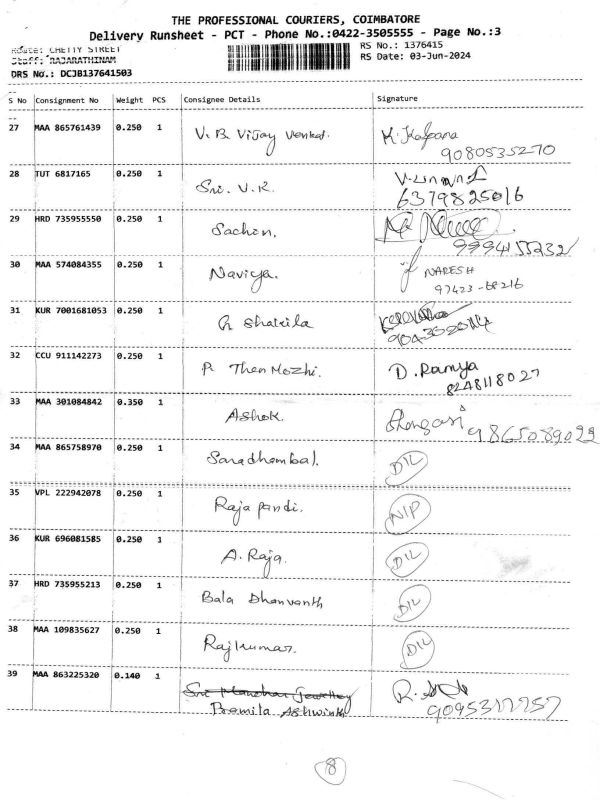 THE PROFESSIONAL COURIERS, COIMBATORE
Delivery Runsheet - PCT - Phone No.:0422-3505555 - Page No.:3
Route: CHETTY STREET
RS No.: 1376415
Staff: RAJARATHINAM
RS Date: 03-Jun-2024
DRS No.: DCJB137641503
S No Consignment No Weight PCS Consignee Details Signature
27 MAA 865761439 0.250 1 V. B. Vijay Venkat. K. Kalpana
9080535270
28 TUT 6817165 0.250 1 Sri. V. K.
6379825016
29 HRD 735955550 0.250 1 Sachin.
9994155232
30 MAA 574084355 0.250 1 Naviya. NARESH
97423-68216
31 KUR 7001681053 0.250 1 G Shakila
32 CCU 911142273 0.250 1 P. Then Mozhi. D. Ramya
8248118027
33 MAA 301084842 0.350 1 Ashok.
9865089022
34 MAA 865758970 0.250 1 Saradhambal. DIL
35 VPL 222942078 0.250 1 Raja pandi. NIP
36 KUR 696081585 0.250 1 A. Raja. DIL
37 HRD 735955213 0.250 1 Bala Dhanvanth DIL
38 MAA 109835627 0.250 1 Rajkumar. DIL
39 MAA 863225320 0.140 1 Sri Manohar Jewellery
Promila Ashwinth
8